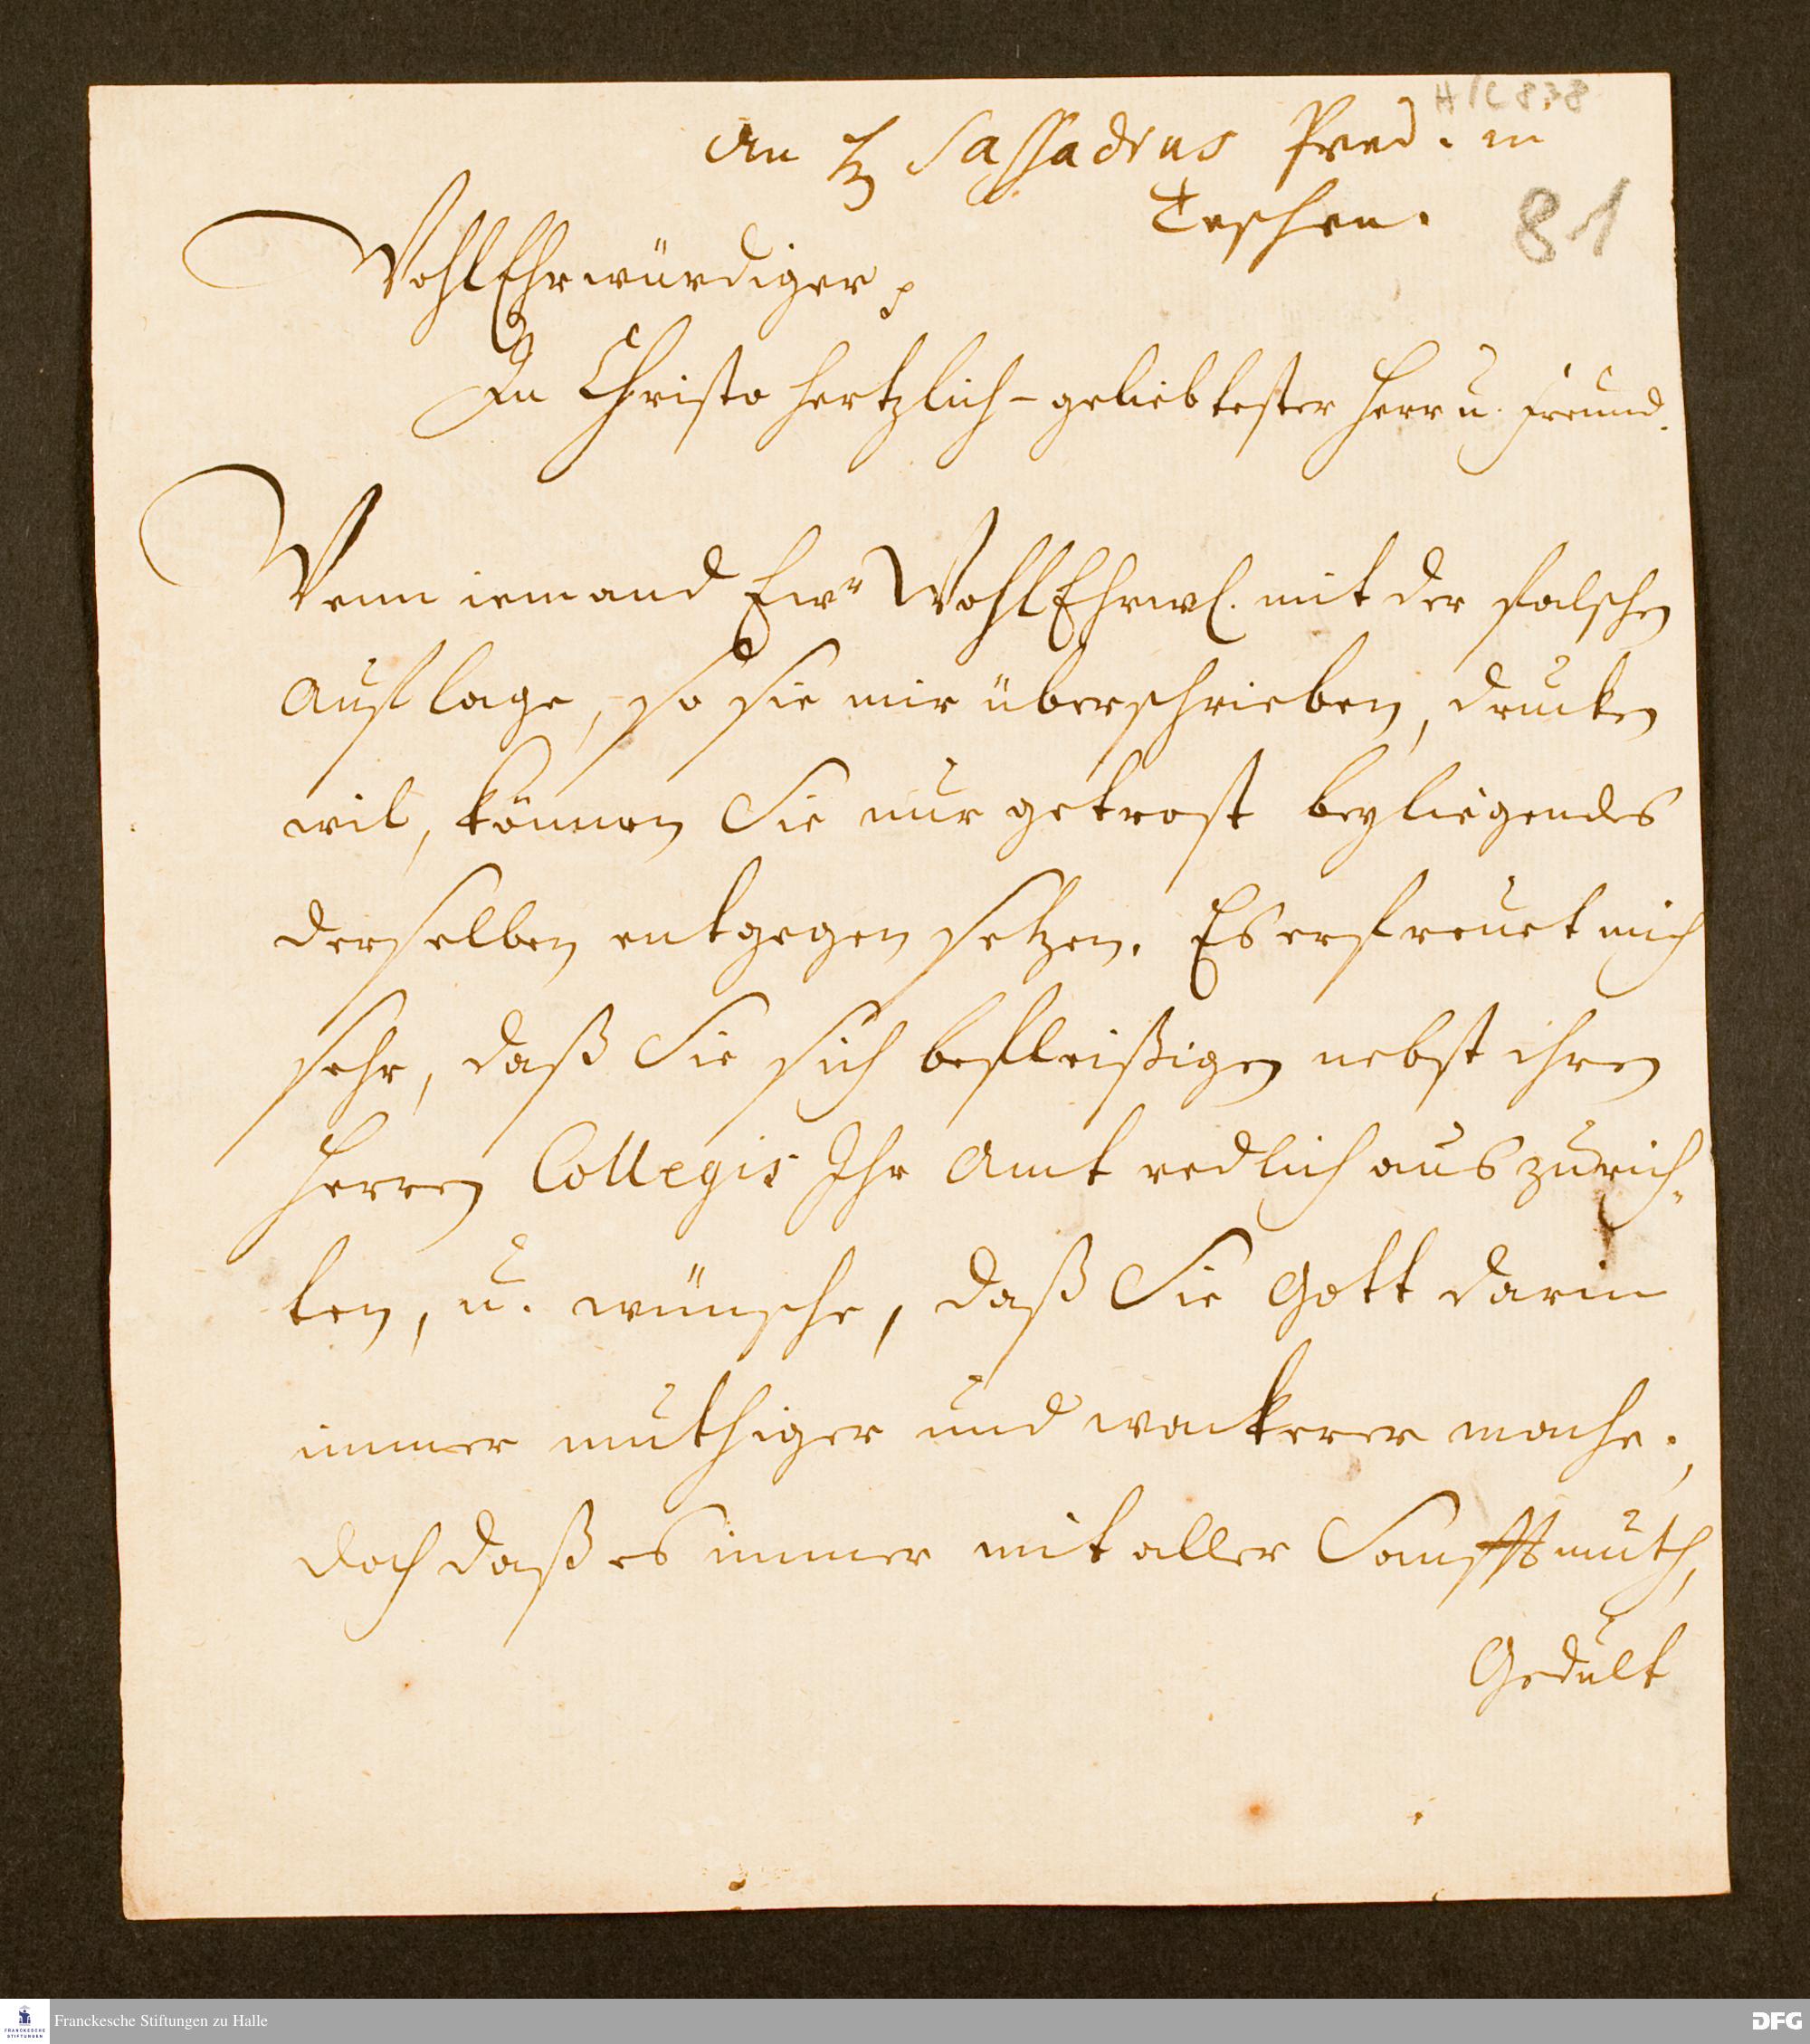 H/C 838
An H. Sassadius Pred. in
Teschen.
81
WohlEhrwürdiger p
In Christo hertzlich-geliebtester Herr u. Freund.
Wenn iemand Ewr WohlEhrw. mit der falschen
Auflage, so sie mir überschrieben, drucken
wil, können Sie nur getrost beyliegendes
derselben entgegen setzen. Es erfreuet mich
sehr, daß Sie sich befleißigen nebst ihren
Herren Collegis Ihr Amt redlich auszurich-
ten, u. wünsche, daß Sie Gott darin
immer muthiger und wackerer mache;
doch daß es immer mit aller Sanfftmuth,
Gedult
Franckesche Stiftungen zu Halle
FRANCKESCHE
STIFTUNGEN
DFG